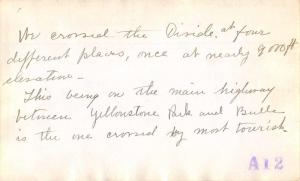 We crossed the Divide at four
different places, once at nearly 9000 ft
elevation -
This being on the main highway
between Yellowstone Park and Butte
is the one crossed by most tourists
A12